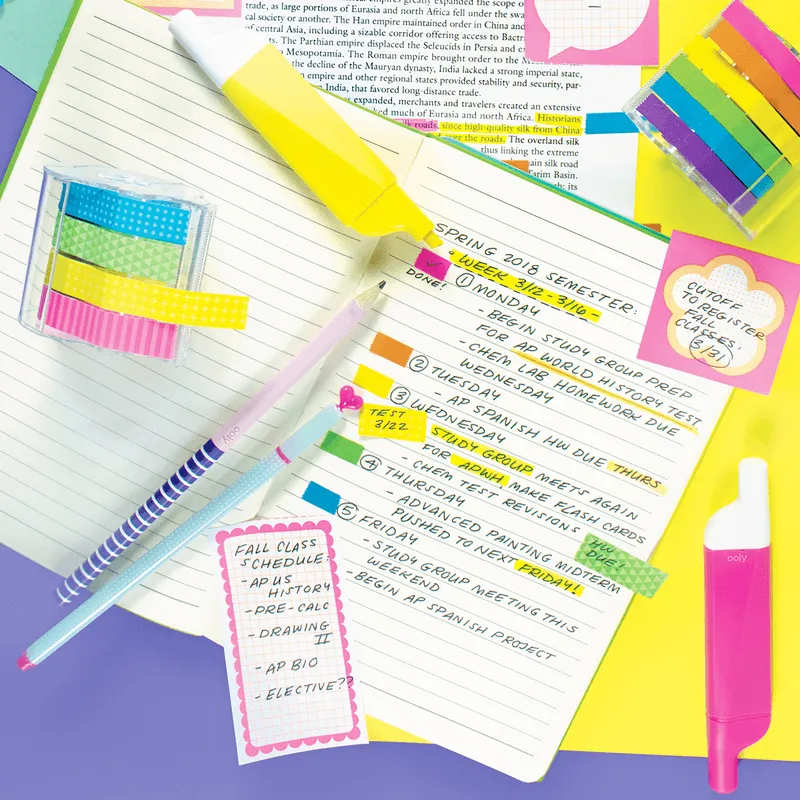 trade, as large portions of Eurasia and north Africa fell under the swa
cal society or another. The Han empire maintained order in China and
of central Asia, including a sizable corridor offering access to Bactr
The Parthian empire displaced the Seleucids in Persia and ex
Mesopotamia. The Roman empire brought order to the
the decline of the Mauryan dynasty, India lacked a strong imperial state,
empire and other regional states provided stability and security, par-
India, that favored long-distance trade.
expanded, merchants and travelers created an extensive
ked much of Eurasia and north Africa. Historians
silk roads, since high-quality silk from China
over the roads. The overland silk
thus linking the extreme
main silk road
Tarim Basin.
: its
SPRING 2018 SEMESTER:
• WEEK 3/12-3/16-
DONE!
1 MONDAY
- BEGIN STUDY GROUP PREP
FOR AP WORLD HISTORY TEST
- CHEM LAB HOMEWORK DUE
WEDNESDAY
2 TUESDAY
- AP SPANISH HW DUE THURS.
3 WEDNESDAY
STUDY GROUP MEETS AGAIN
FOR APWH, MAKE FLASH CARDS
- CHEM TEST REVISIONS
4 THURSDAY
- ADVANCED PAINTING MIDTERM
PUSHED TO NEXT FRIDAY!
5 FRIDAY
- STUDY GROUP MEETING THIS
WEEKEND
- BEGIN AP SPANISH PROJECT
TEST
3/22
HW
DUE!
CUTOFF
TO REGISTER
FALL
CLASSES:
3/31
FALL CLASS
SCHEDULE:
- AP US
HISTORY
- PRE-CALC
- DRAWING
II
- AP BIO
- ELECTIVE??
ooly
ooly